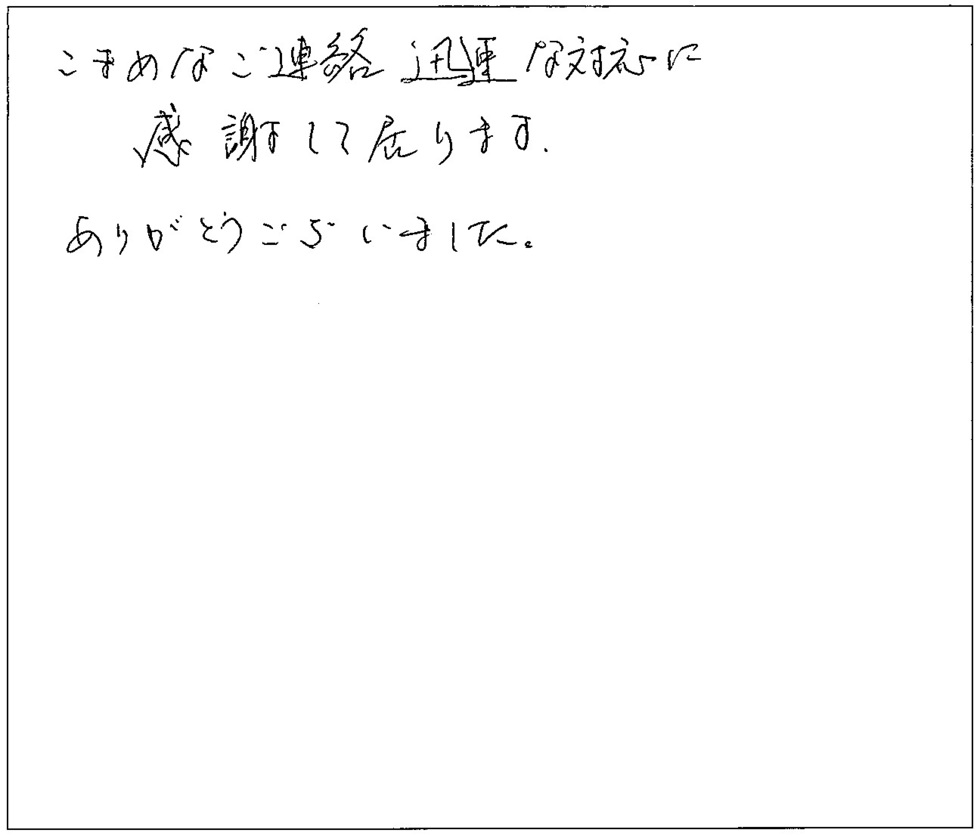 こまめなご連絡 迅速な対応に
感謝して居ります.
ありがとうございました。